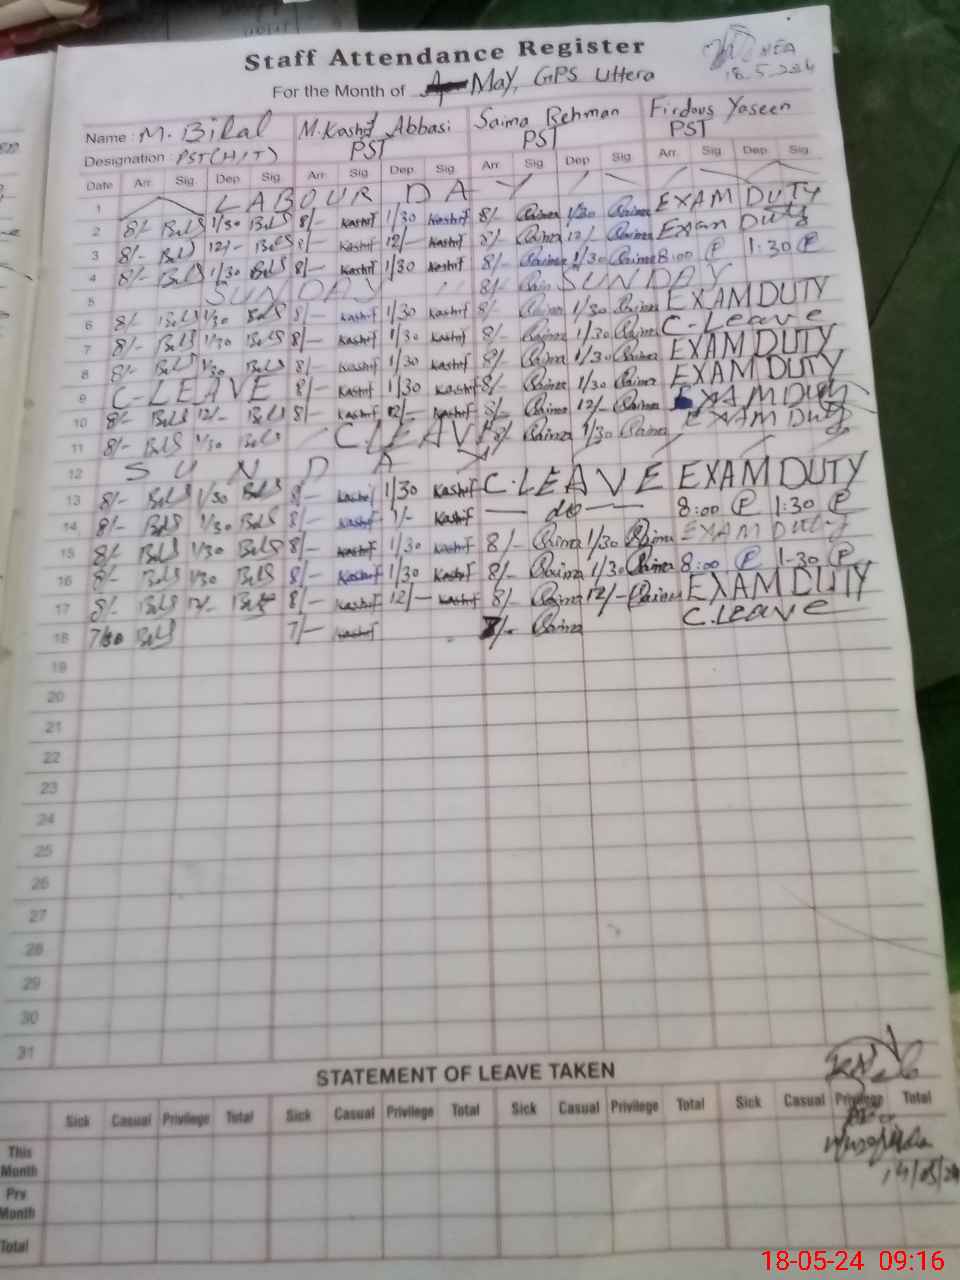 Staff Attendance Register
NEA
18.5.2024
For the Month of May, GPS Uttera
Name : M. Bilal M. Kashif Abbasi Saima Rehman Firdous Yaseen
Designation : PST(H/T) PST PST PST
Date Arr. Sig. Dep. Sig. Arr. Sig. Dep. Sig. Arr. Sig. Dep. Sig. Arr. Sig. Dep. Sig.
1 LABOUR DAY
2 8/- 1/30 8/- Kashif 1/30 Kashif 8/- Saima 1/30 Saima EXAM DUTY
3 8/- 12/- 8/- Kashif 12/- Kashif 8/- Saima 12/- Saima Exam Duty
4 8/- 1/30 8/- Kashif 1/30 Kashif 8/- Saima 1/30 Saima 8:00 1:30
5 SUNDAY 8/- SUNDAY
6 8/- 1/30 8/- Kashif 1/30 Kashif 8/- Saima 1/30 Saima EXAM DUTY
7 8/- 1/30 8/- Kashif 1/30 Kashif 8/- Saima 1/30 Saima C-Leave
8 8/- 1/30 8/- Kashif 1/30 Kashif 8/- Saima 1/30 Saima EXAM DUTY
9 C-LEAVE 8/- Kashif 1/30 Kashif 8/- Saima 1/30 Saima EXAM DUTY
10 8/- 12/- 8/- Kashif 12/- Kashif 8/- Saima 12/- Saima EXAM Duty
11 8/- 1/30 C LEAVE 8/- Saima 1/30 Saima EXAM Duty
12 SUNDAY
13 8/- 1/30 8/- Kashif 1/30 Kashif C.LEAVE EXAM DUTY
14 8/- 1/30 8/- Kashif 1/- Kashif — do — 8:00 1:30
15 8/- 1/30 8/- Kashif 1/30 Kashif 8/- Saima 1/30 Saima EXAM Duty
16 8/- 1/30 8/- Kashif 1/30 Kashif 8/- Saima 1/30 Saima 8:00 1-30
17 8/- 12/- 8/- Kashif 12/- Kashif 8/- Saima 12/- Saima EXAM DUTY
18 7/30 7/- Kashif Saima C.Leave
19
20
21
22
23
24
25
26
27
28
29
30
31
STATEMENT OF LEAVE TAKEN
Sick Casual Privilege Total Sick Casual Privilege Total Sick Casual Privilege Total Sick Casual Privilege Total
This Month
Prv Month
14/05/24
Total
18-05-24 09:16